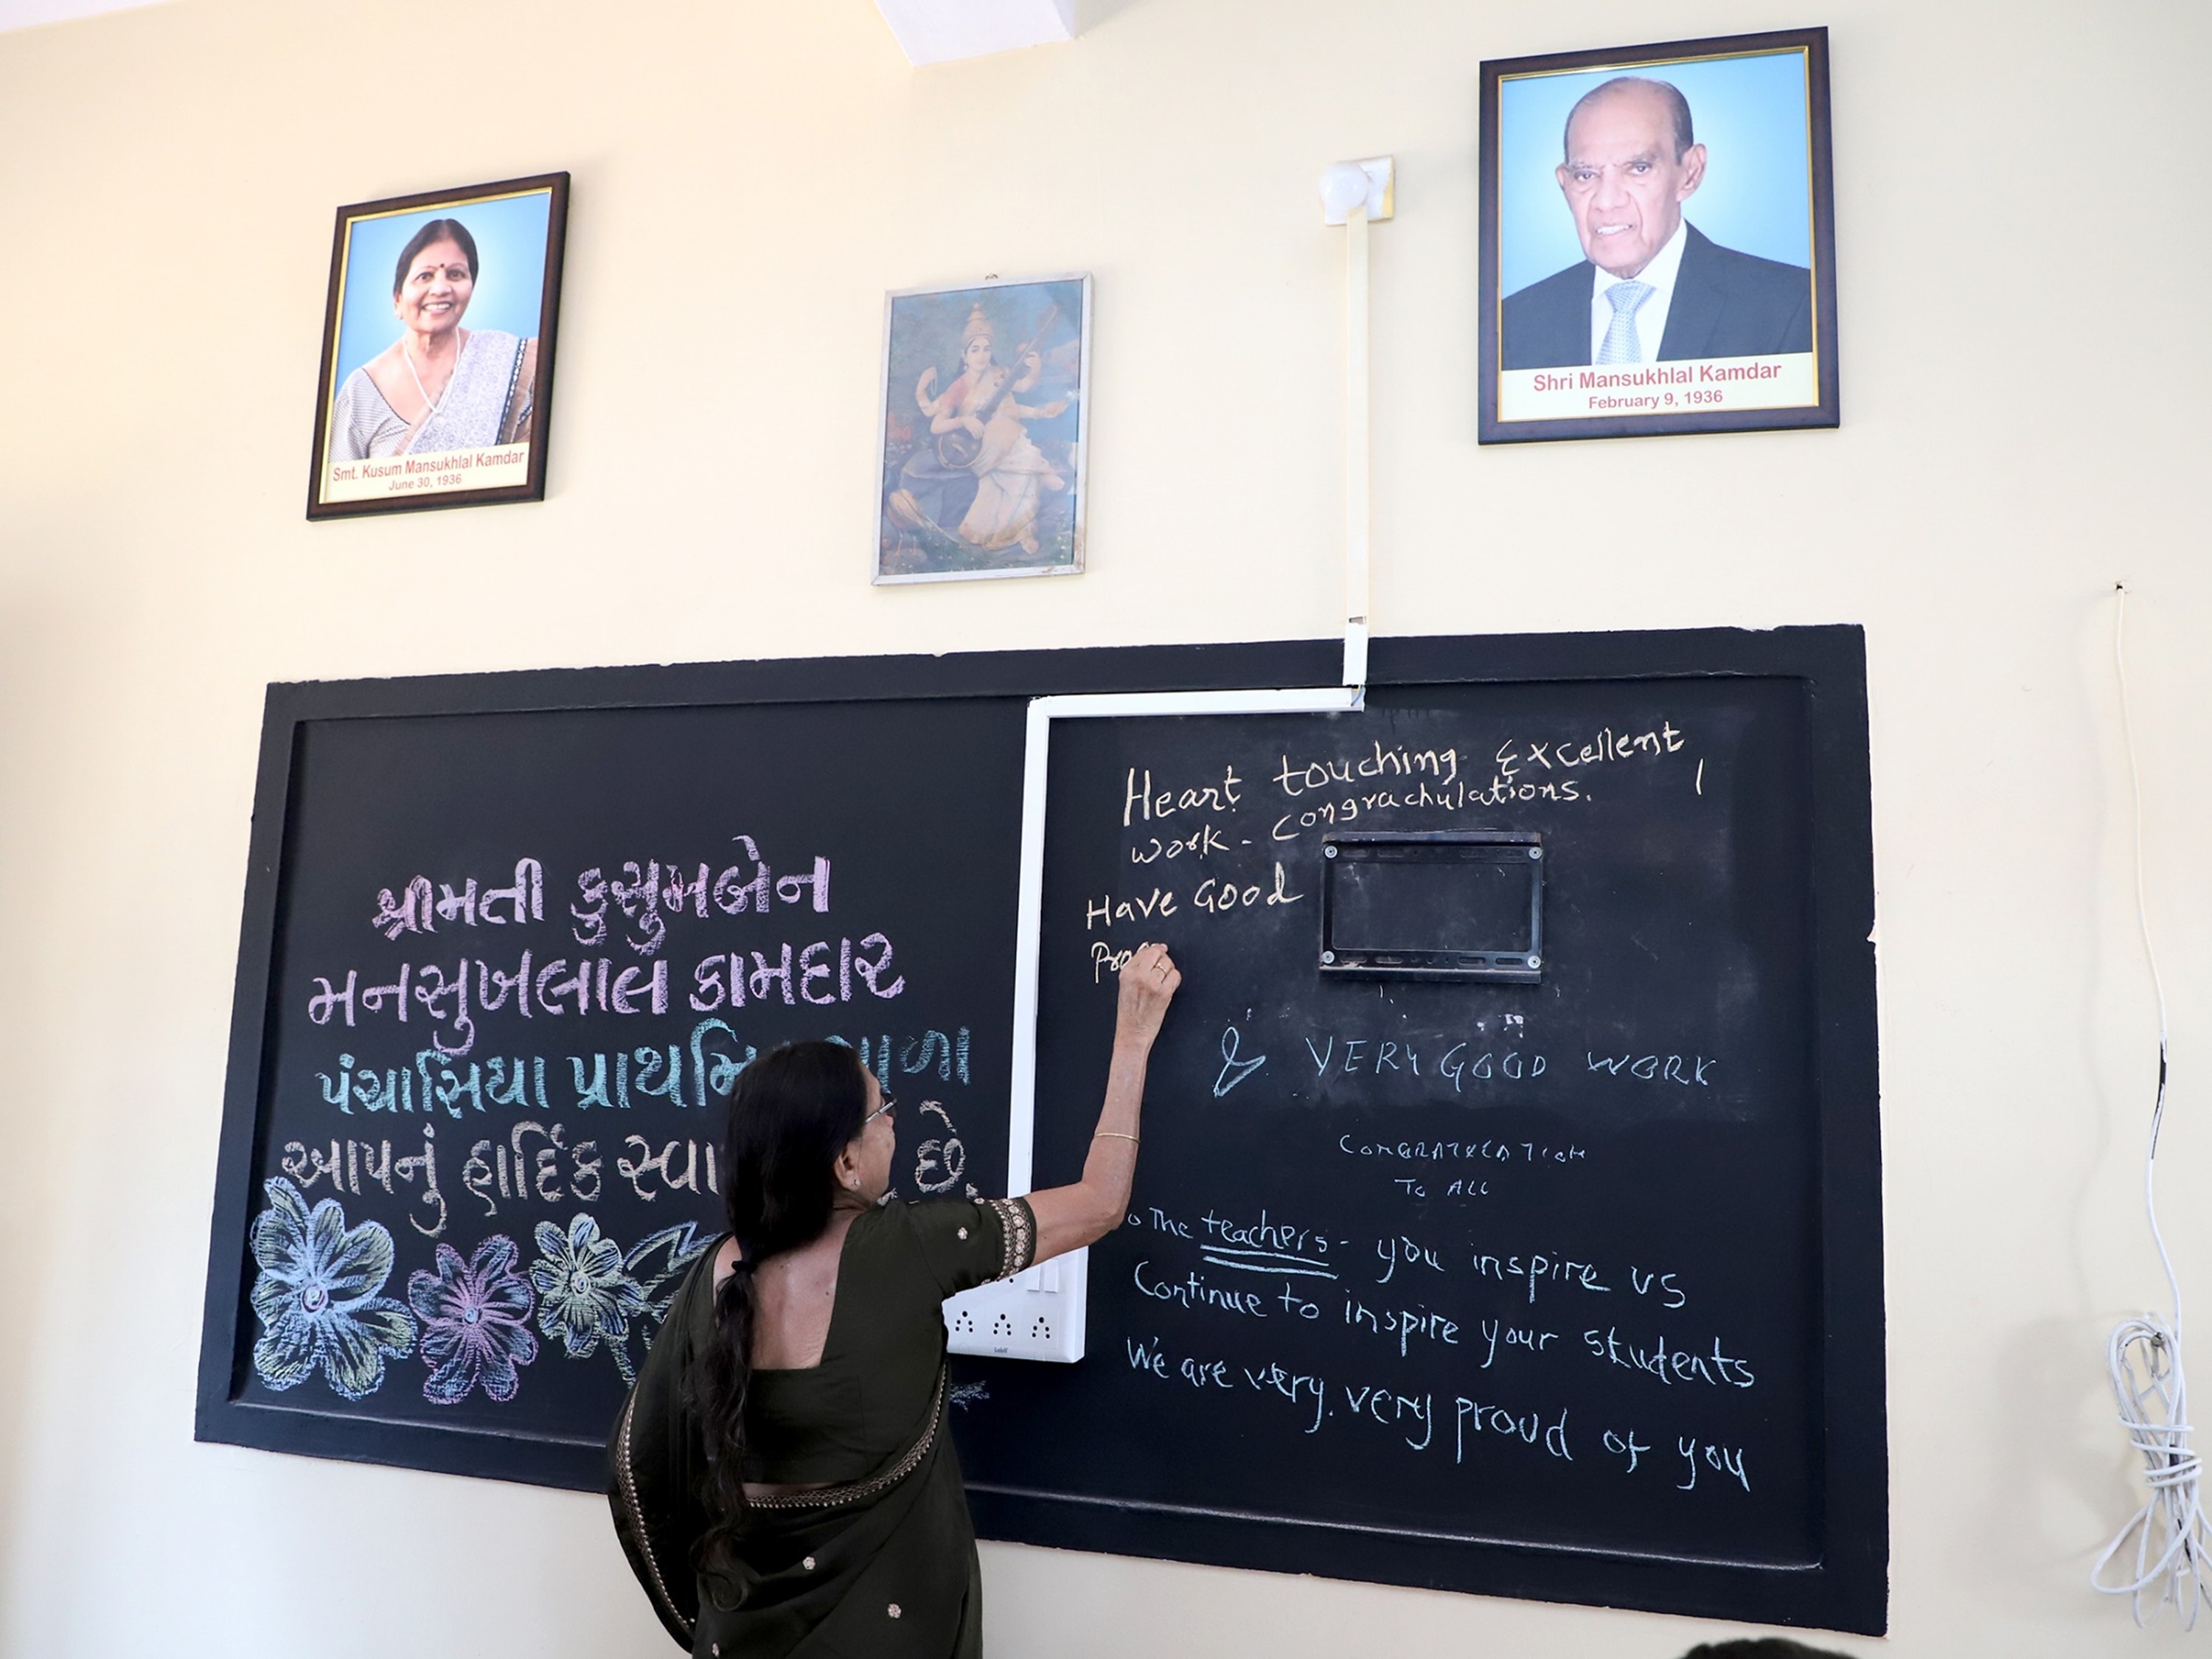 Smt. Kusum Mansukhlal Kamdar
June 30, 1936
Shri Mansukhlal Kamdar
February 9, 1936
શ્રીમતી કુસુમબેન
મનસુખલાલ કામદાર
પંચાસિયા પ્રાથમિ
આપનું હાર્દિક સ્વા છે.
Heart touching Excellent
work - Congrachulations.
Have Good
VERY GOOD WORK
TO ALL
The teachers - you inspire us
Continue to inspire your students
We are very very proud of you